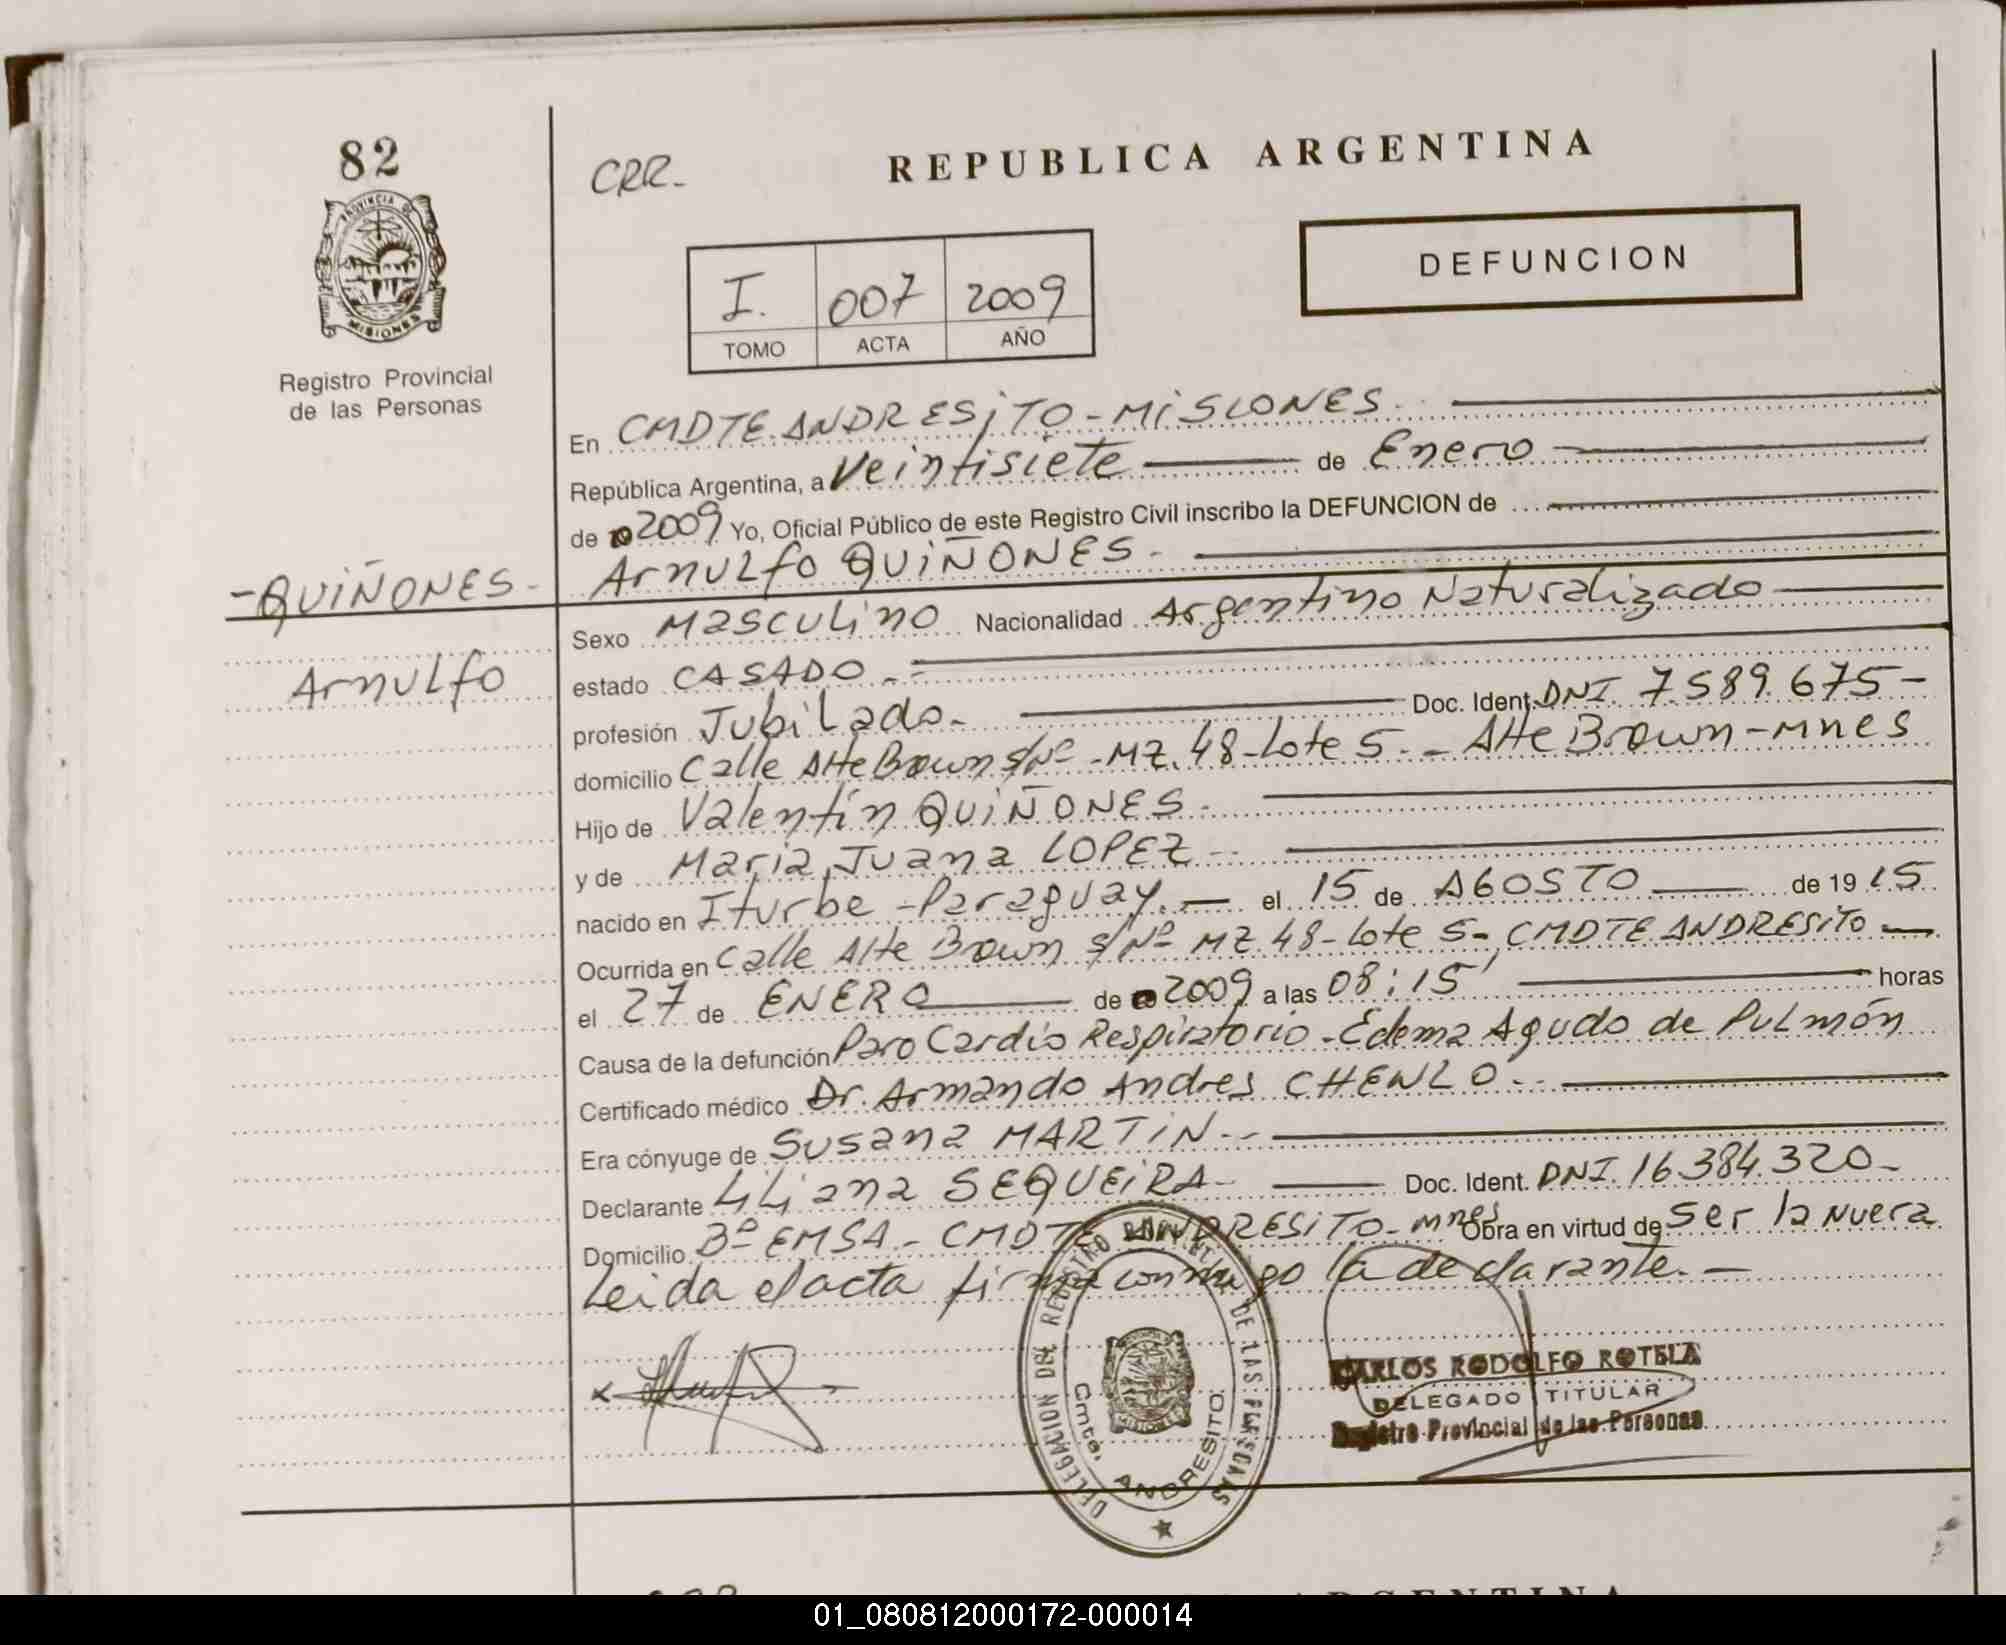 82
PROVINCIA DE
MISIONES
Registro Provincial
de las Personas
CRR-
REPUBLICA ARGENTINA
DEFUNCION
I. 007 2009
TOMO ACTA AÑO
En CMDTE ANDRESiTO - MiSIONES.
República Argentina, a Veintisiete de Enero
de 2009 Yo, Oficial Público de este Registro Civil inscribo la DEFUNCION de
-QUiÑONES- Arnulfo QUiÑONES.-
Arnulfo
Sexo Masculino Nacionalidad Argentino Naturalizado
estado CASADO.-
profesión Jubilado.- Doc. Ident. DNI. 7.589.675-
domicilio Calle Alte Brown s/Nº - MZ. 48 - Lote 5.- Alte Brown - mnes
Hijo de Valentín QUiÑONES.-
y de Maria Juana LOPEZ.-
nacido en Iturbe - Paraguay.- el 15 de AGOSTO de 19 15
Ocurrida en Calle Alte Brown s/Nº MZ 48 - Lote 5 - CMDTE ANDRESiTO
el 27 de ENERO de 2009 a las 08:15' horas
Causa de la defunción Paro Cardio Respiratorio - Edema Agudo de Pulmón
Certificado médico Dr. Armando Andres CHENLO.-
Era cónyuge de Susana MARTiN.-
Declarante Liliana SEQUEiRA- Doc. Ident. DNI. 16.384.320-
Domicilio Bº EMSA - CMDTE ANDRESiTO - mnes Obra en virtud de Ser la Nuera
Leida el acta firma conmigo la declarante.-
DELEGACION DEL REGISTRO PROVINCIAL DE LAS PERSONAS
Cmte. ANDRESITO
CARLOS RODOLFO ROTELA
DELEGADO TITULAR
Registro Provincial de las Personas
ARGENTINA
01_080812000172-000014